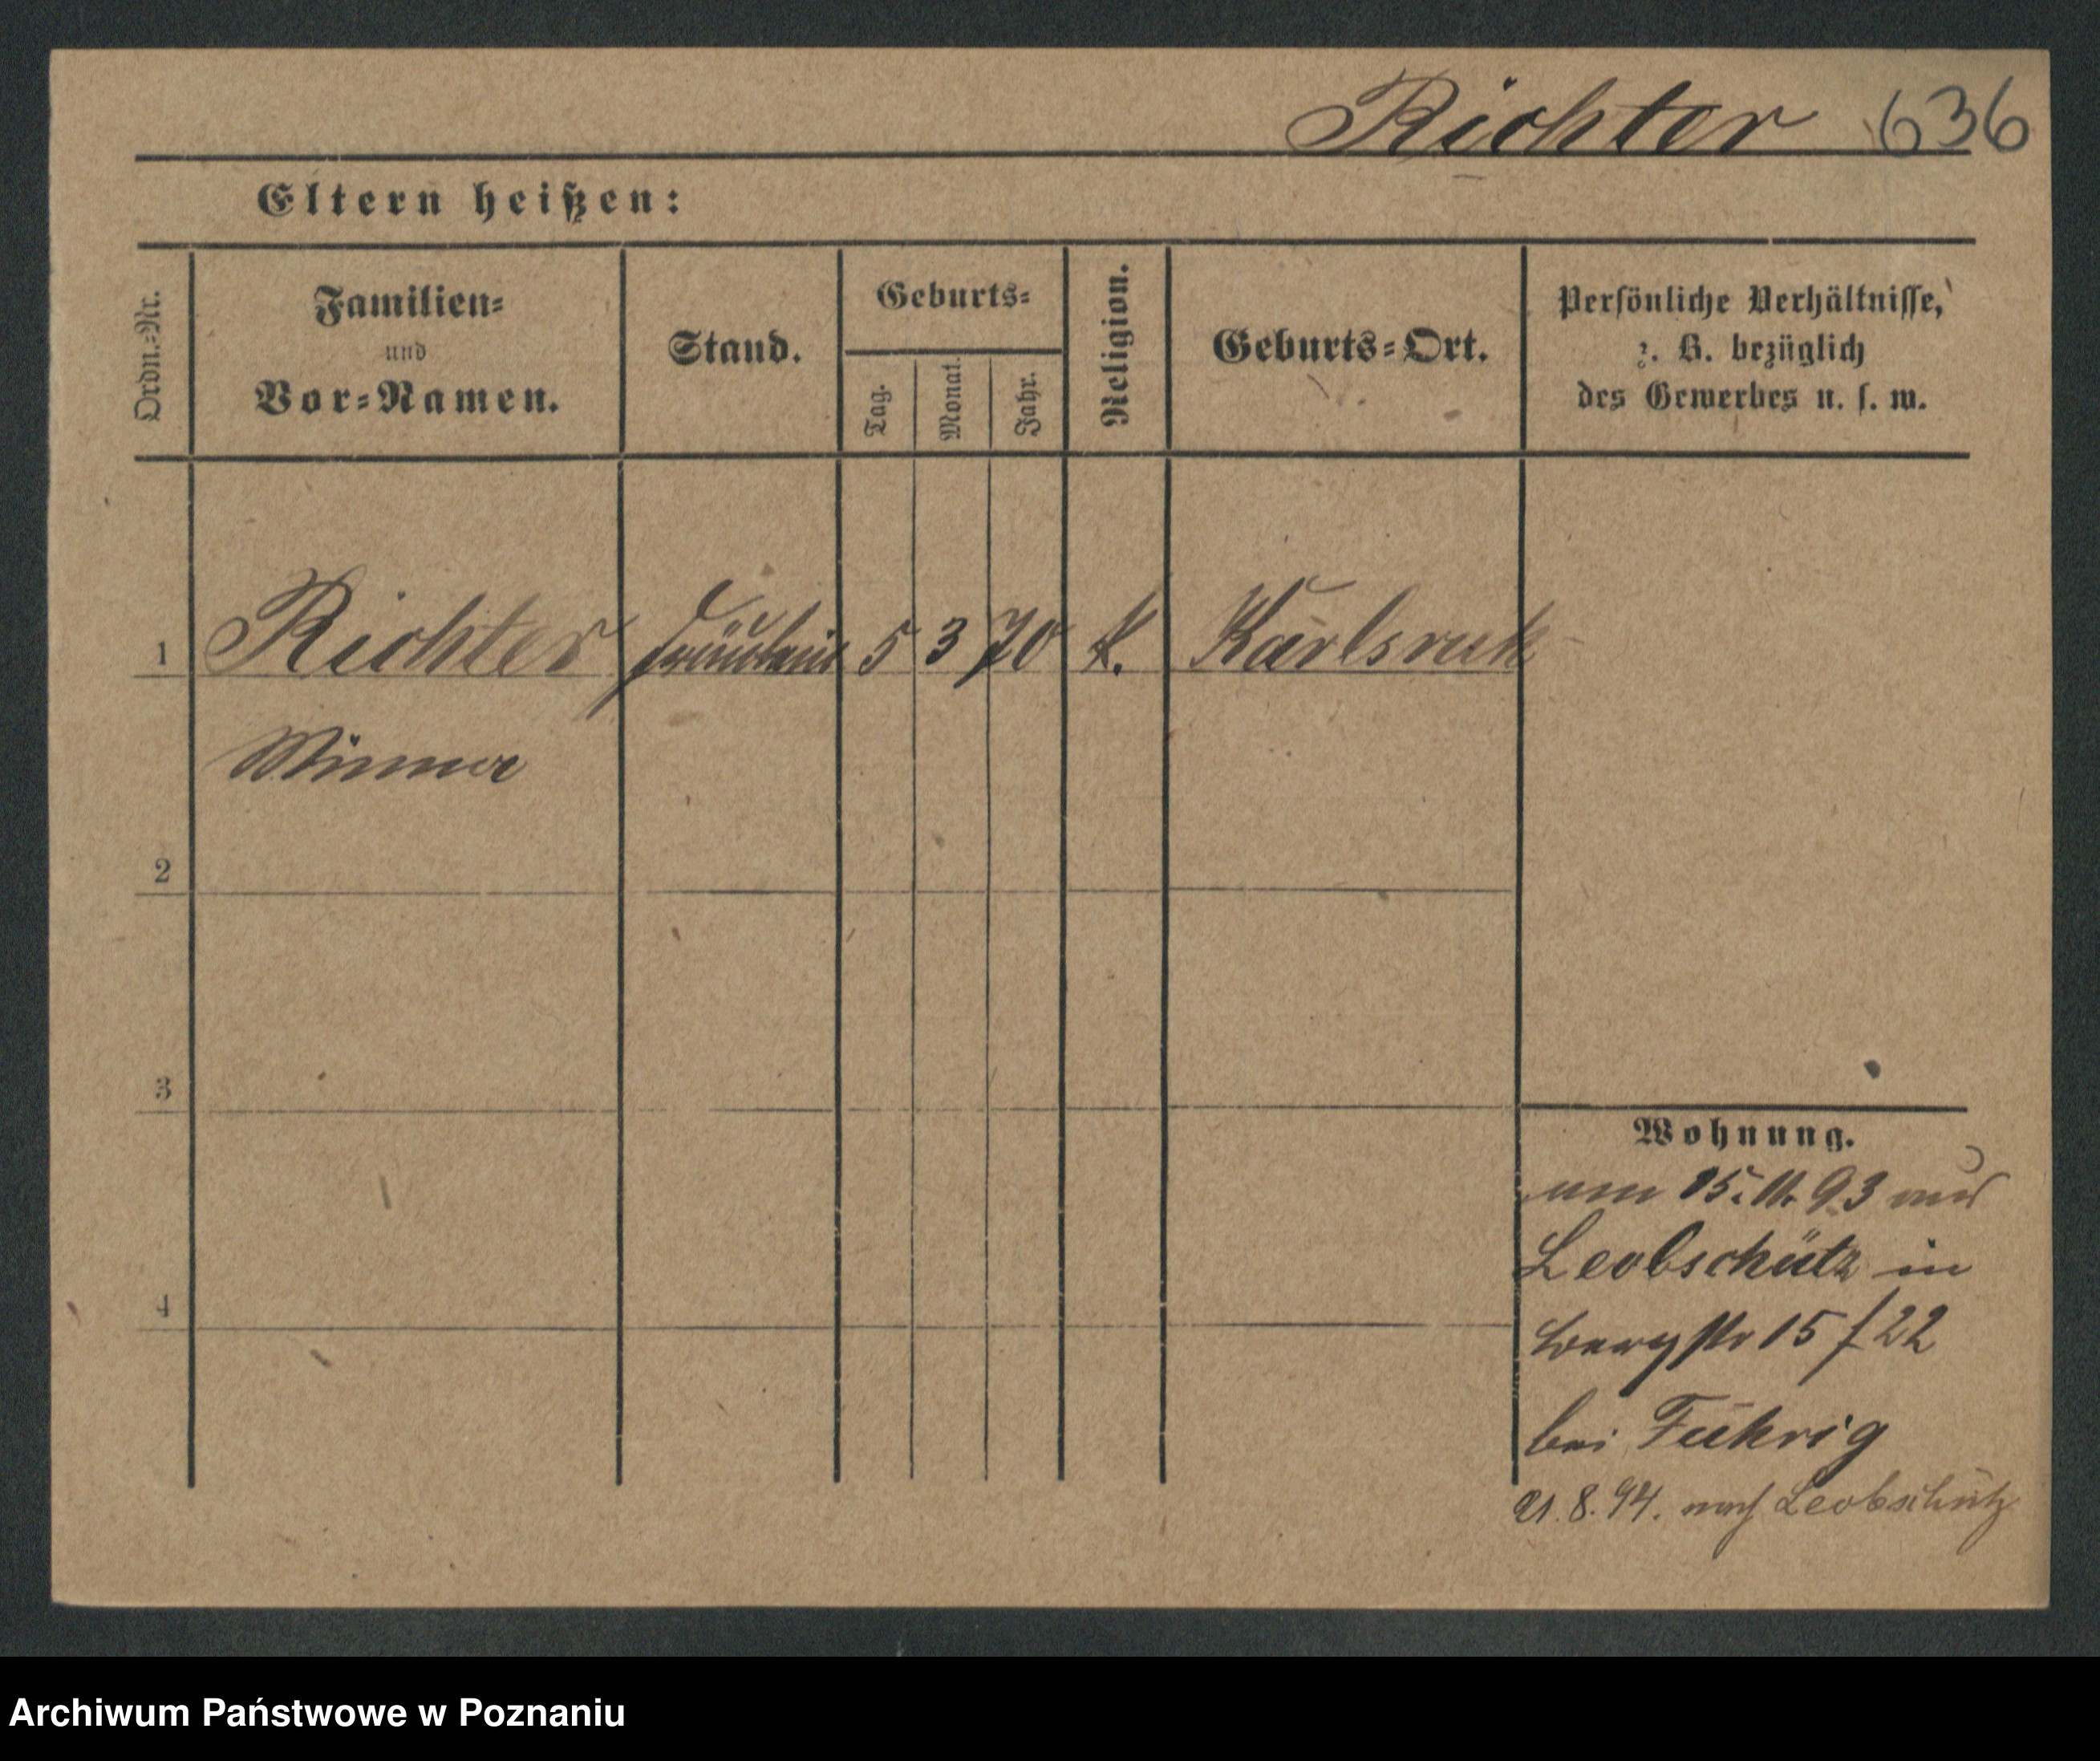 Richter 636
Eltern heißen:
Ordn.-Nr.
Familien-
und
Vor-Namen.
Stand.
Geburts-
Tag.
Monat.
Jahr.
Religion.
Geburts-Ort.
Persönliche Verhältnisse,
z. B. bezüglich
des Gewerbes u. s. w.
1 Richter Fräulein 5 3 70 k. Karlsruh
Minna
2
3
4
Wohnung.
93 aus
Leobschütz in
15 f 22
bei Führig
21. 8. 94. nach Leobschütz
Archiwum Państwowe w Poznaniu